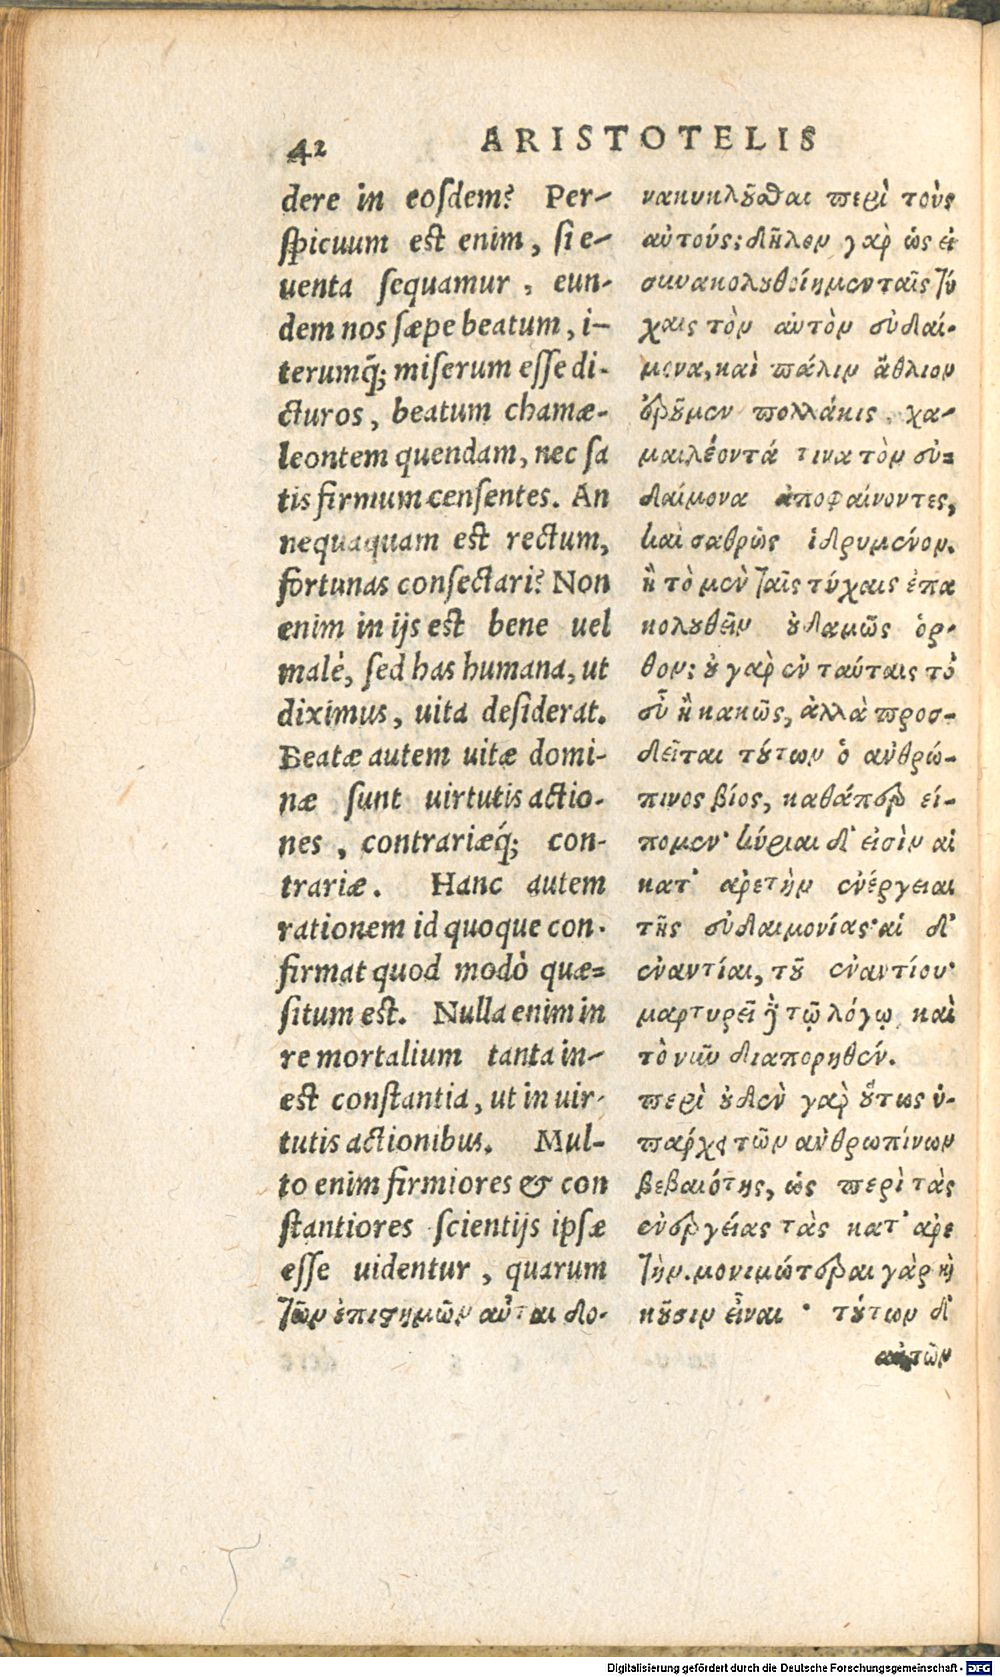 42 ARISTOTELIS
dere in eosdem? Per-
spicuum est enim, si e-
uenta sequamur, eun-
dem nos sæpe beatum, i-
terumq́; miserum esse di-
cturos, beatum chamæ-
leontem quendam, nec sa
tis firmum censentes. An
nequaquam est rectum,
fortunas consectari? Non
enim in ijs est bene uel
malè, sed has humana, ut
diximus, uita desiderat.
Beatæ autem uitæ domi-
næ sunt uirtutis actio-
nes, contrariæq́; con-
trariæ. Hanc autem
rationem id quoque con-
firmat quod modò quæ=
situm est. Nulla enim in
re mortalium tanta in-
est constantia, ut in uir-
tutis actionibus. Mul-
to enim firmiores & con
stantiores scientijs ipsæ
esse uidentur, quarum
τῶν ἐπιστημῶν αὗται δο-
νακυκλοῦσθαι περὶ τοὺς
αὐτούς; δῆλον γὰρ ὡς εἰ
συνακολουθοίημεν ταῖς τύ
χαις τὸν αὐτὸν εὐδαί-
μονα, καὶ πάλιν ἄθλιον
ἐροῦμεν πολλάκις, χα-
μαιλέοντά τινα τὸν εὐ=
δαίμονα ἀποφαίνοντες,
καὶ σαθρῶς ἱδρυμένον.
ἢ τὸ μὲν ταῖς τύχαις ἐπα
κολουθεῖν οὐδαμῶς ὀρ-
θον; οὐ γὰρ ἐν ταύταις τὸ
εὖ ἢ κακῶς, ἀλλὰ προσ-
δεῖται τούτων ὁ ἀνθρώ-
πινος βίος, καθάπερ εἴ-
πομεν· κύριαι δ' εἰσὶν αἱ
κατ' ἀρετὴν ἐνέργειαι
τῆς εὐδαιμονίας· αἱ δ'
ἐναντίαι, τοῦ ἐναντίου·
μαρτυρεῖ δὲ τῷ λόγῳ, καὶ
τὸ νῦν διαπορηθέν.
περὶ οὐδὲν γὰρ οὕτως ὑ-
πάρχει τῶν ἀνθρωπίνων
βεβαιότης, ὡς περὶ τὰς
ἐνεργείας τὰς κατ' ἀρε
τήν. μονιμώτεραι γὰρ καὶ
κοῦσιν εἶναι · τούτων δ'
αὐτῶν
Digitalisierung gefördert durch die Deutsche Forschungsgemeinschaft - DFG